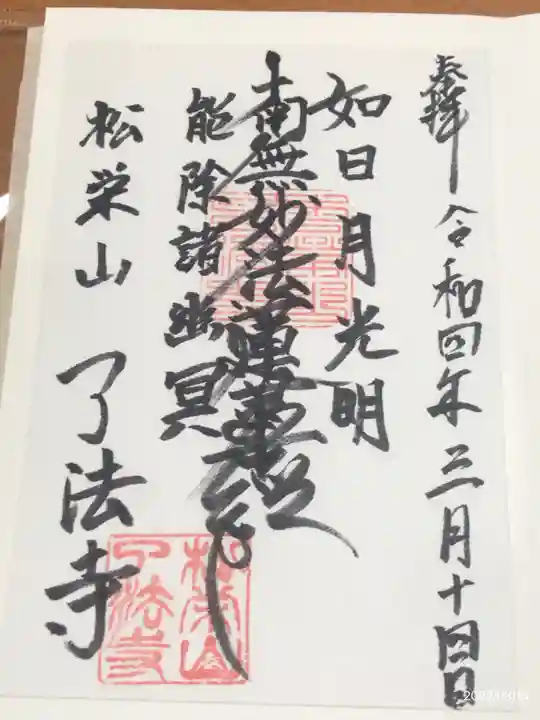 奉拝 令和四年三月十四日
如日月光明
南無妙法蓮華経
能除諸幽冥
松栄山 了法寺
松栄山
了法寺